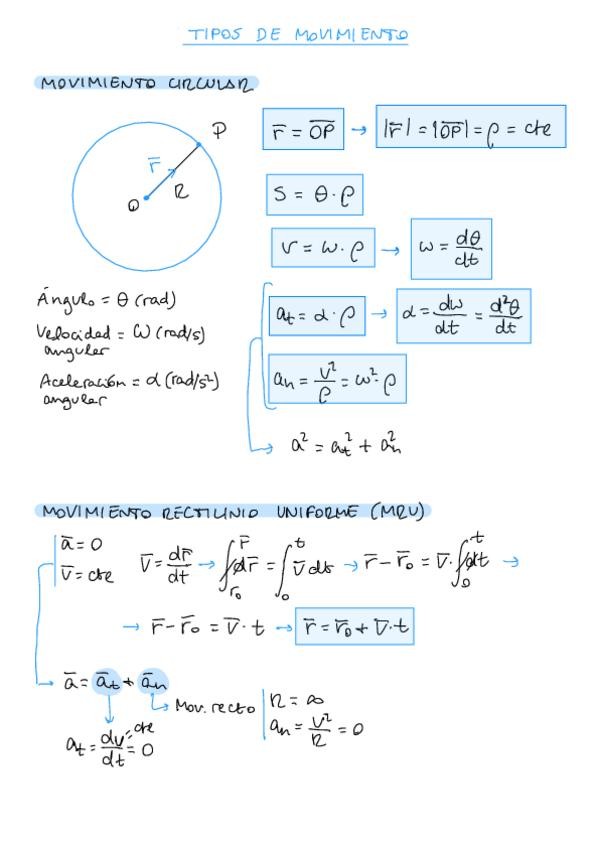 TIPOS DE MOVIMIENTO
MOVIMIENTO CIRCULAR
P
r̄
R
O
r̄ = O̅P̅ → |r̄| = |O̅P̅| = ρ = cte
S = θ · ρ
v = ω · ρ → ω = dθ/dt
Ángulo = θ (rad)
Velocidad = ω (rad/s)
angular
Aceleración = α (rad/s²)
angular
at = α · ρ → α = dω/dt = d²θ/dt
an = v²/ρ = ω² · ρ
a² = at² + an²
MOVIMIENTO RECTILINIO UNIFORME (MRU)
ā = 0
v̄ = cte
v̄ = dr̄/dt → ∫r̄₀^r̄ dr̄ = ∫₀^t v̄ dt → r̄ − r̄₀ = v̄ · ∫₀^t dt →
→ r̄ − r̄₀ = v̄ · t → r̄ = r̄₀ + v̄ · t
ā = āt + ān
→ Mov. recto
R = ∞
an = v²/R = 0
at = dv=cte/dt = 0